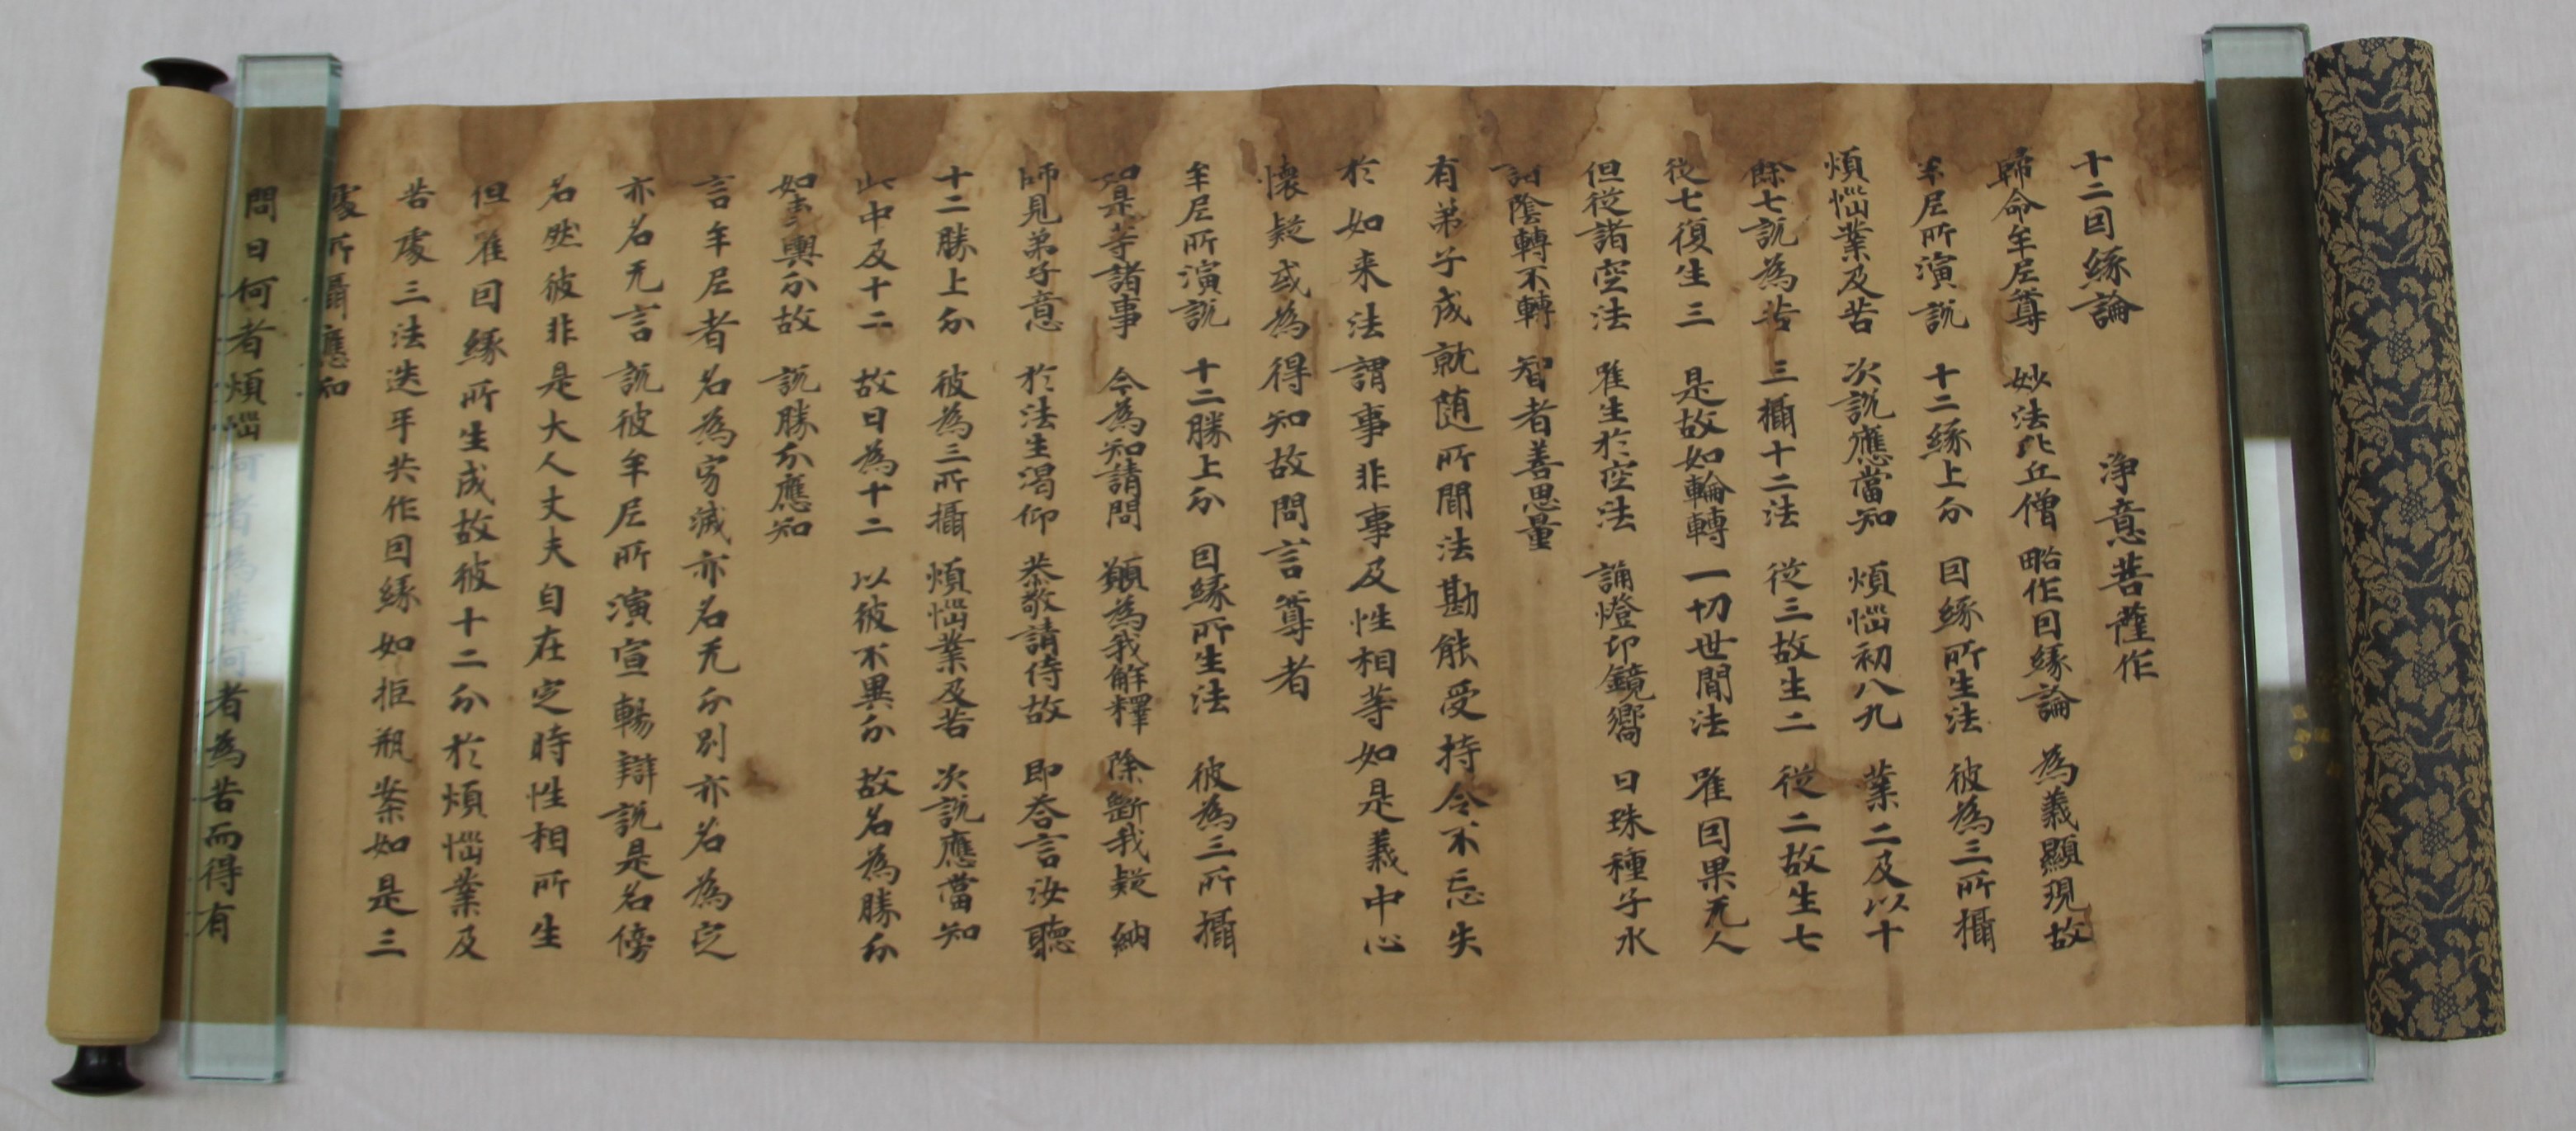 十二因緣論 淨意菩薩作
歸命牟尼尊 妙法比丘僧 略作因緣論 為義顯現故
牟尼所演說 十二緣上分 因緣所生法 彼為三所攝
煩惱業及苦 次說應當知 煩惱初八九 業二及以十
餘七說為苦 三攝十二法 從三故生二 從二故生七
從七復生三 是故如輪轉 一切世間法 唯因果无人
但從諸空法 唯生於空法 誦燈印鏡嚮 日珠種子水
詶陰轉不轉 智者善思量
有弟子成就随所聞法勘能受持令不忘失
於如来法謂事非事及性相等如是義中心
懷疑或為得知故問言尊者
牟尼所演說 十二勝上分 因緣所生法 彼為三所攝
如是等諸事 今為知請問 願為我解釋 除斷我疑納
師見弟子意 於法生渴仰 恭敬請侍故 即答言汝聽
十二勝上分 彼為三所攝 煩惱業及苦 次說應當知
此中及十二 故曰為十二 以彼不異分 故名為勝分
如車轝分故 說勝分應知
言牟尼者名為穷滅亦名无分別亦名為定
亦名无言說彼牟尼所演宣暢辯說是名傍
名然彼非是大人丈夫自在定時性相所生
但唯因緣所生成故彼十二分於煩惱業及
苦處三法迭乎共作因緣如拒瓶案如是三
處所攝應知
問曰何者煩惱何者為業何者為苦而得有